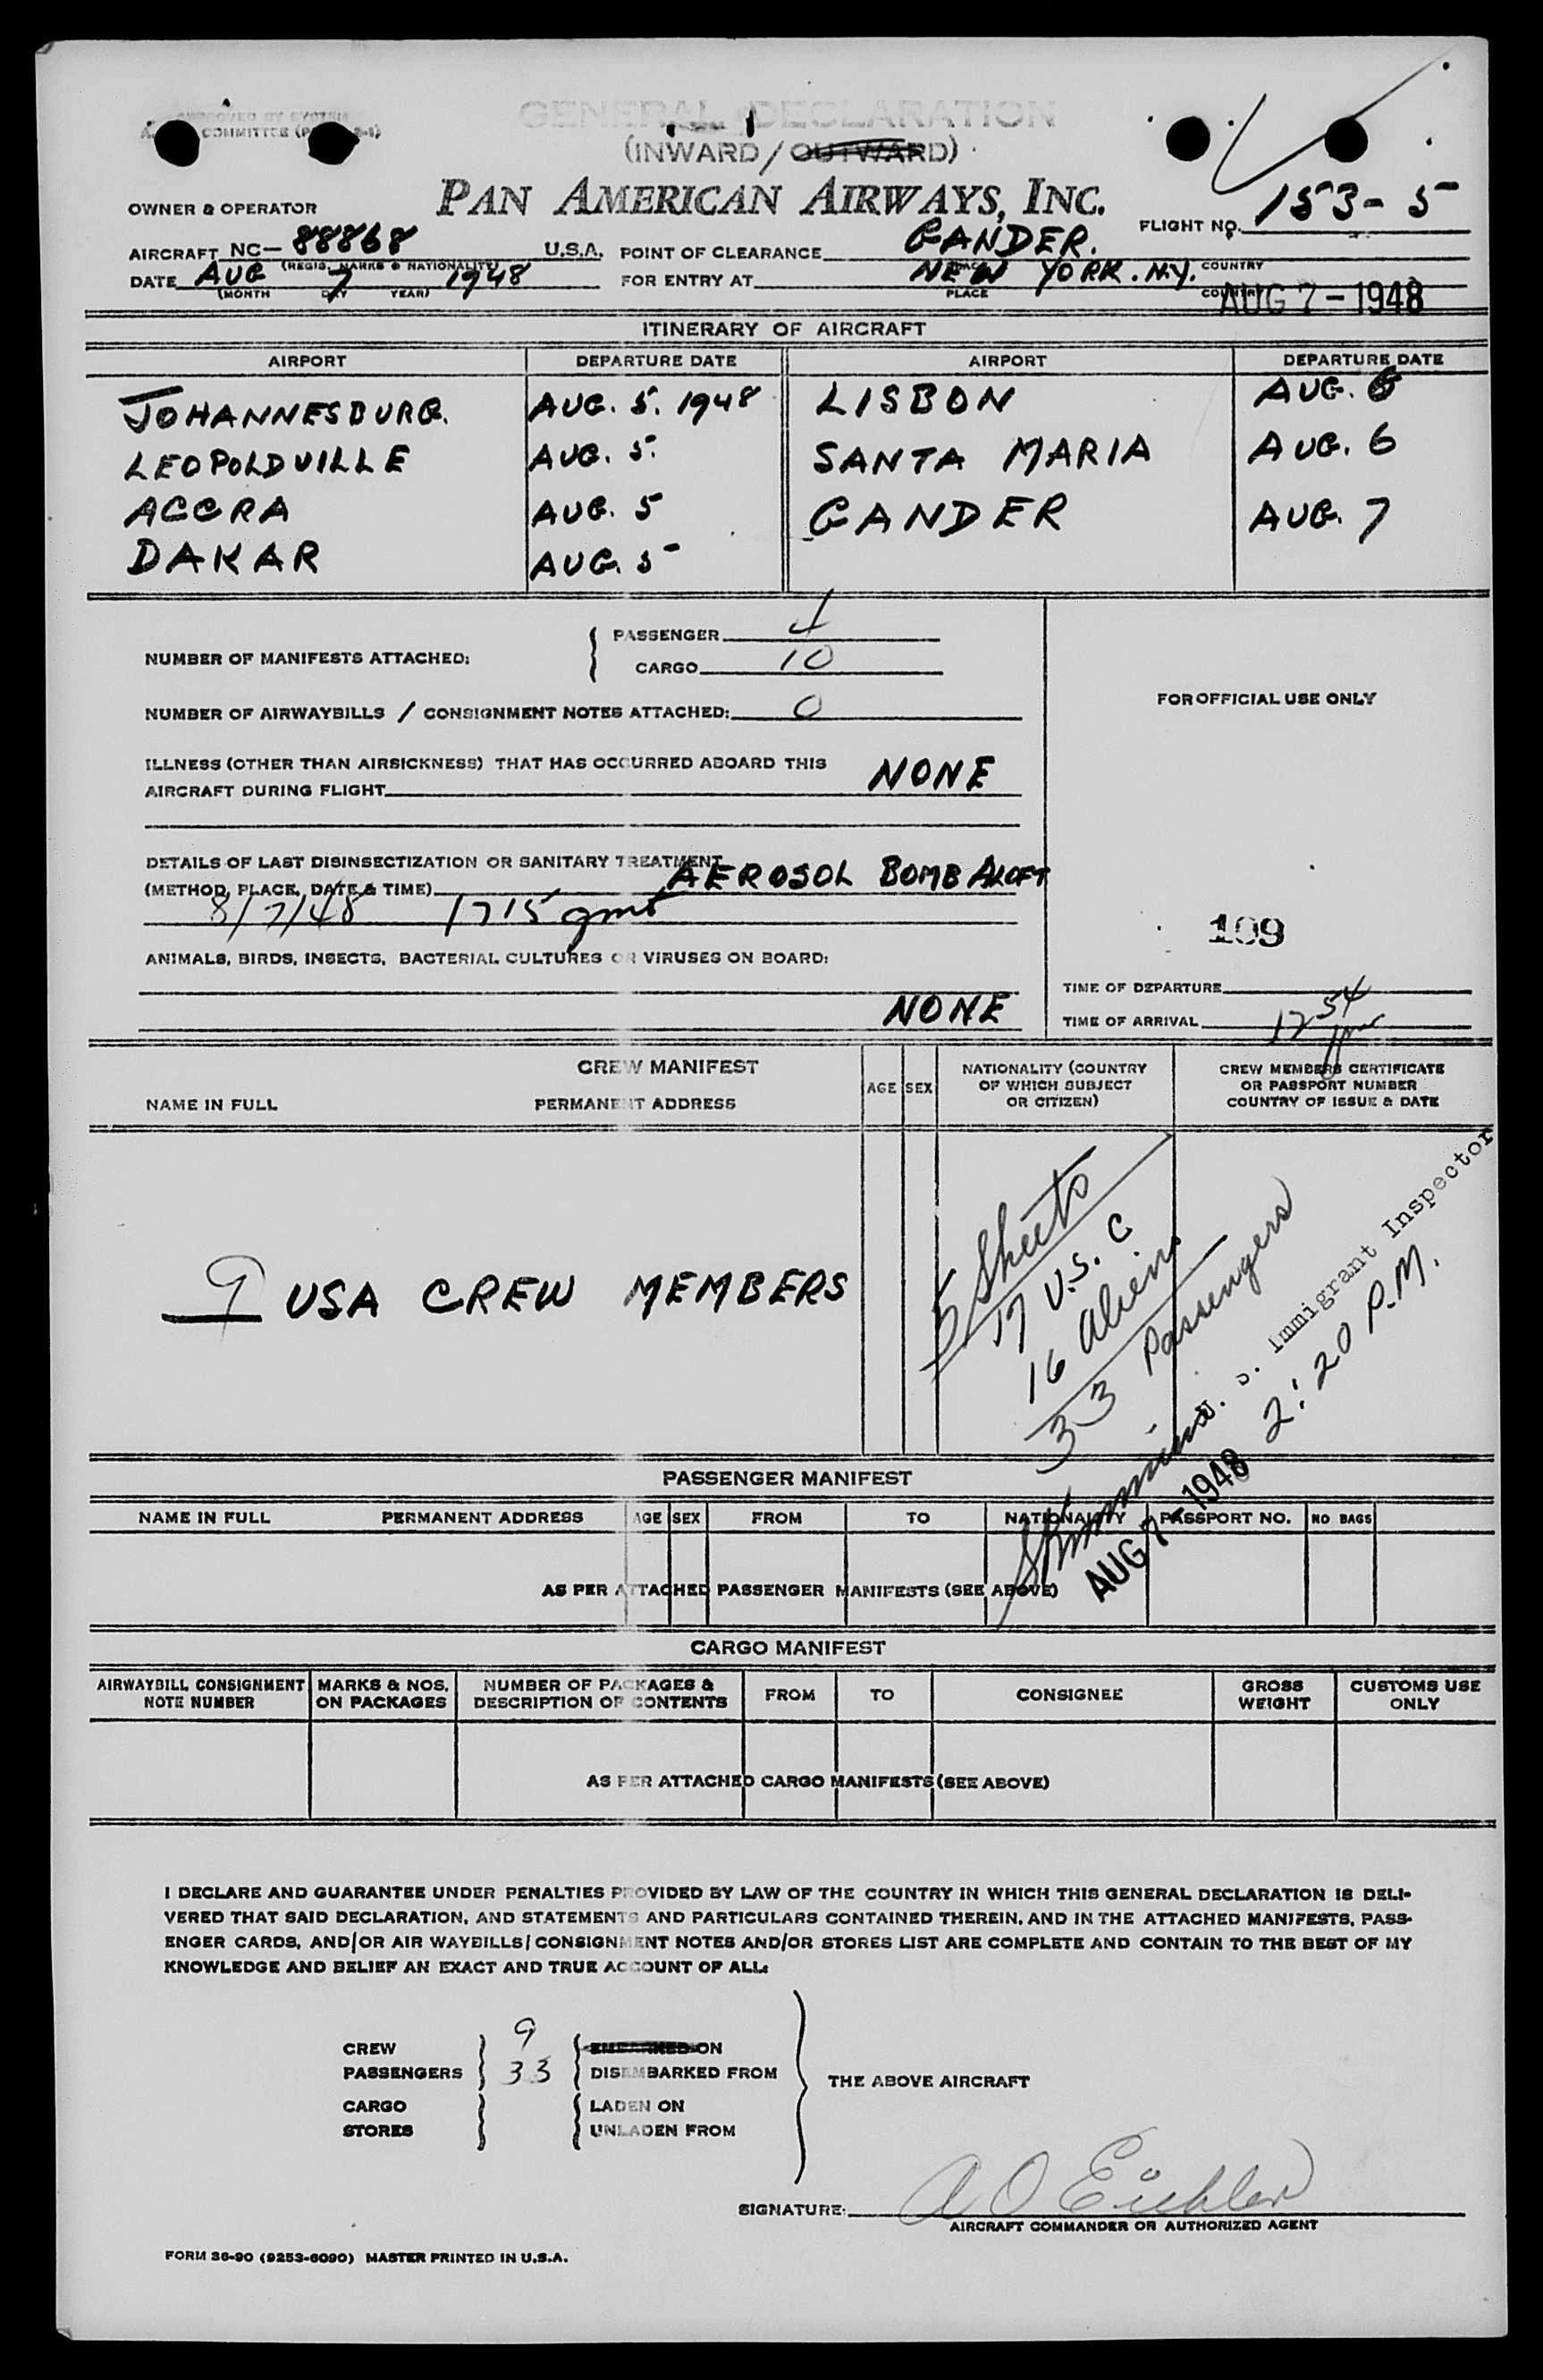 GENERAL DECLARATION
(INWARD/OUTWARD)
PAN AMERICAN AIRWAYS, INC.
OWNER & OPERATOR
FLIGHT NO. 153-5
AIRCRAFT NC- 88868 U.S.A. POINT OF CLEARANCE GANDER.
(REGIS. MARKS & NATIONALITY) COUNTRY
DATE AUG 7 1948 FOR ENTRY AT NEW YORK. N.Y.
(MONTH DAY YEAR) PLACE
AUG 7-1948
ITINERARY OF AIRCRAFT
AIRPORT DEPARTURE DATE AIRPORT DEPARTURE DATE
JOHANNESBURG. AUG. 5. 1948 LISBON AUG. 6
LEOPOLDVILLE AUG. 5. SANTA MARIA AUG. 6
ACCRA AUG. 5 GANDER AUG. 7
DAKAR AUG. 5
NUMBER OF MANIFESTS ATTACHED: PASSENGER 4
CARGO 10
NUMBER OF AIRWAYBILLS / CONSIGNMENT NOTES ATTACHED: 0
FOR OFFICIAL USE ONLY
ILLNESS (OTHER THAN AIRSICKNESS) THAT HAS OCCURRED ABOARD THIS
AIRCRAFT DURING FLIGHT NONE
DETAILS OF LAST DISINSECTIZATION OR SANITARY TREATMENT
(METHOD, PLACE, DATE & TIME) AEROSOL BOMB ALOFT
8/7/48 1715 gmt
109
ANIMALS, BIRDS, INSECTS, BACTERIAL CULTURES OR VIRUSES ON BOARD:
NONE
TIME OF DEPARTURE
TIME OF ARRIVAL 1254
CREW MANIFEST
NAME IN FULL PERMANENT ADDRESS AGE SEX
NATIONALITY (COUNTRY
OF WHICH SUBJECT
OR CITIZEN)
CREW MEMBERS CERTIFICATE
OR PASSPORT NUMBER
COUNTRY OF ISSUE & DATE
9 USA CREW MEMBERS
5 Sheets
17 U.S. C
16 Aliens
33 Passengers
U. S. Immigrant Inspector
AUG 7-1948 2:20 P.M.
PASSENGER MANIFEST
NAME IN FULL PERMANENT ADDRESS AGE SEX FROM TO NATIONALITY PASSPORT NO. NO BAGS
AS PER ATTACHED PASSENGER MANIFESTS (SEE ABOVE)
CARGO MANIFEST
AIRWAYBILL CONSIGNMENT NOTE NUMBER
MARKS & NOS. ON PACKAGES
NUMBER OF PACKAGES & DESCRIPTION OF CONTENTS
FROM TO CONSIGNEE
GROSS WEIGHT
CUSTOMS USE ONLY
AS PER ATTACHED CARGO MANIFESTS (SEE ABOVE)
I DECLARE AND GUARANTEE UNDER PENALTIES PROVIDED BY LAW OF THE COUNTRY IN WHICH THIS GENERAL DECLARATION IS DELI-
VERED THAT SAID DECLARATION, AND STATEMENTS AND PARTICULARS CONTAINED THEREIN, AND IN THE ATTACHED MANIFESTS, PASS-
ENGER CARDS, AND/OR AIR WAYBILLS/CONSIGNMENT NOTES AND/OR STORES LIST ARE COMPLETE AND CONTAIN TO THE BEST OF MY
KNOWLEDGE AND BELIEF AN EXACT AND TRUE ACCOUNT OF ALL:
CREW 9 EMBARKED ON
PASSENGERS 33 DISEMBARKED FROM
THE ABOVE AIRCRAFT
CARGO LADEN ON
STORES UNLADEN FROM
SIGNATURE: A O Eichler
AIRCRAFT COMMANDER OR AUTHORIZED AGENT
FORM 36-90 (9253-6090) MASTER PRINTED IN U.S.A.